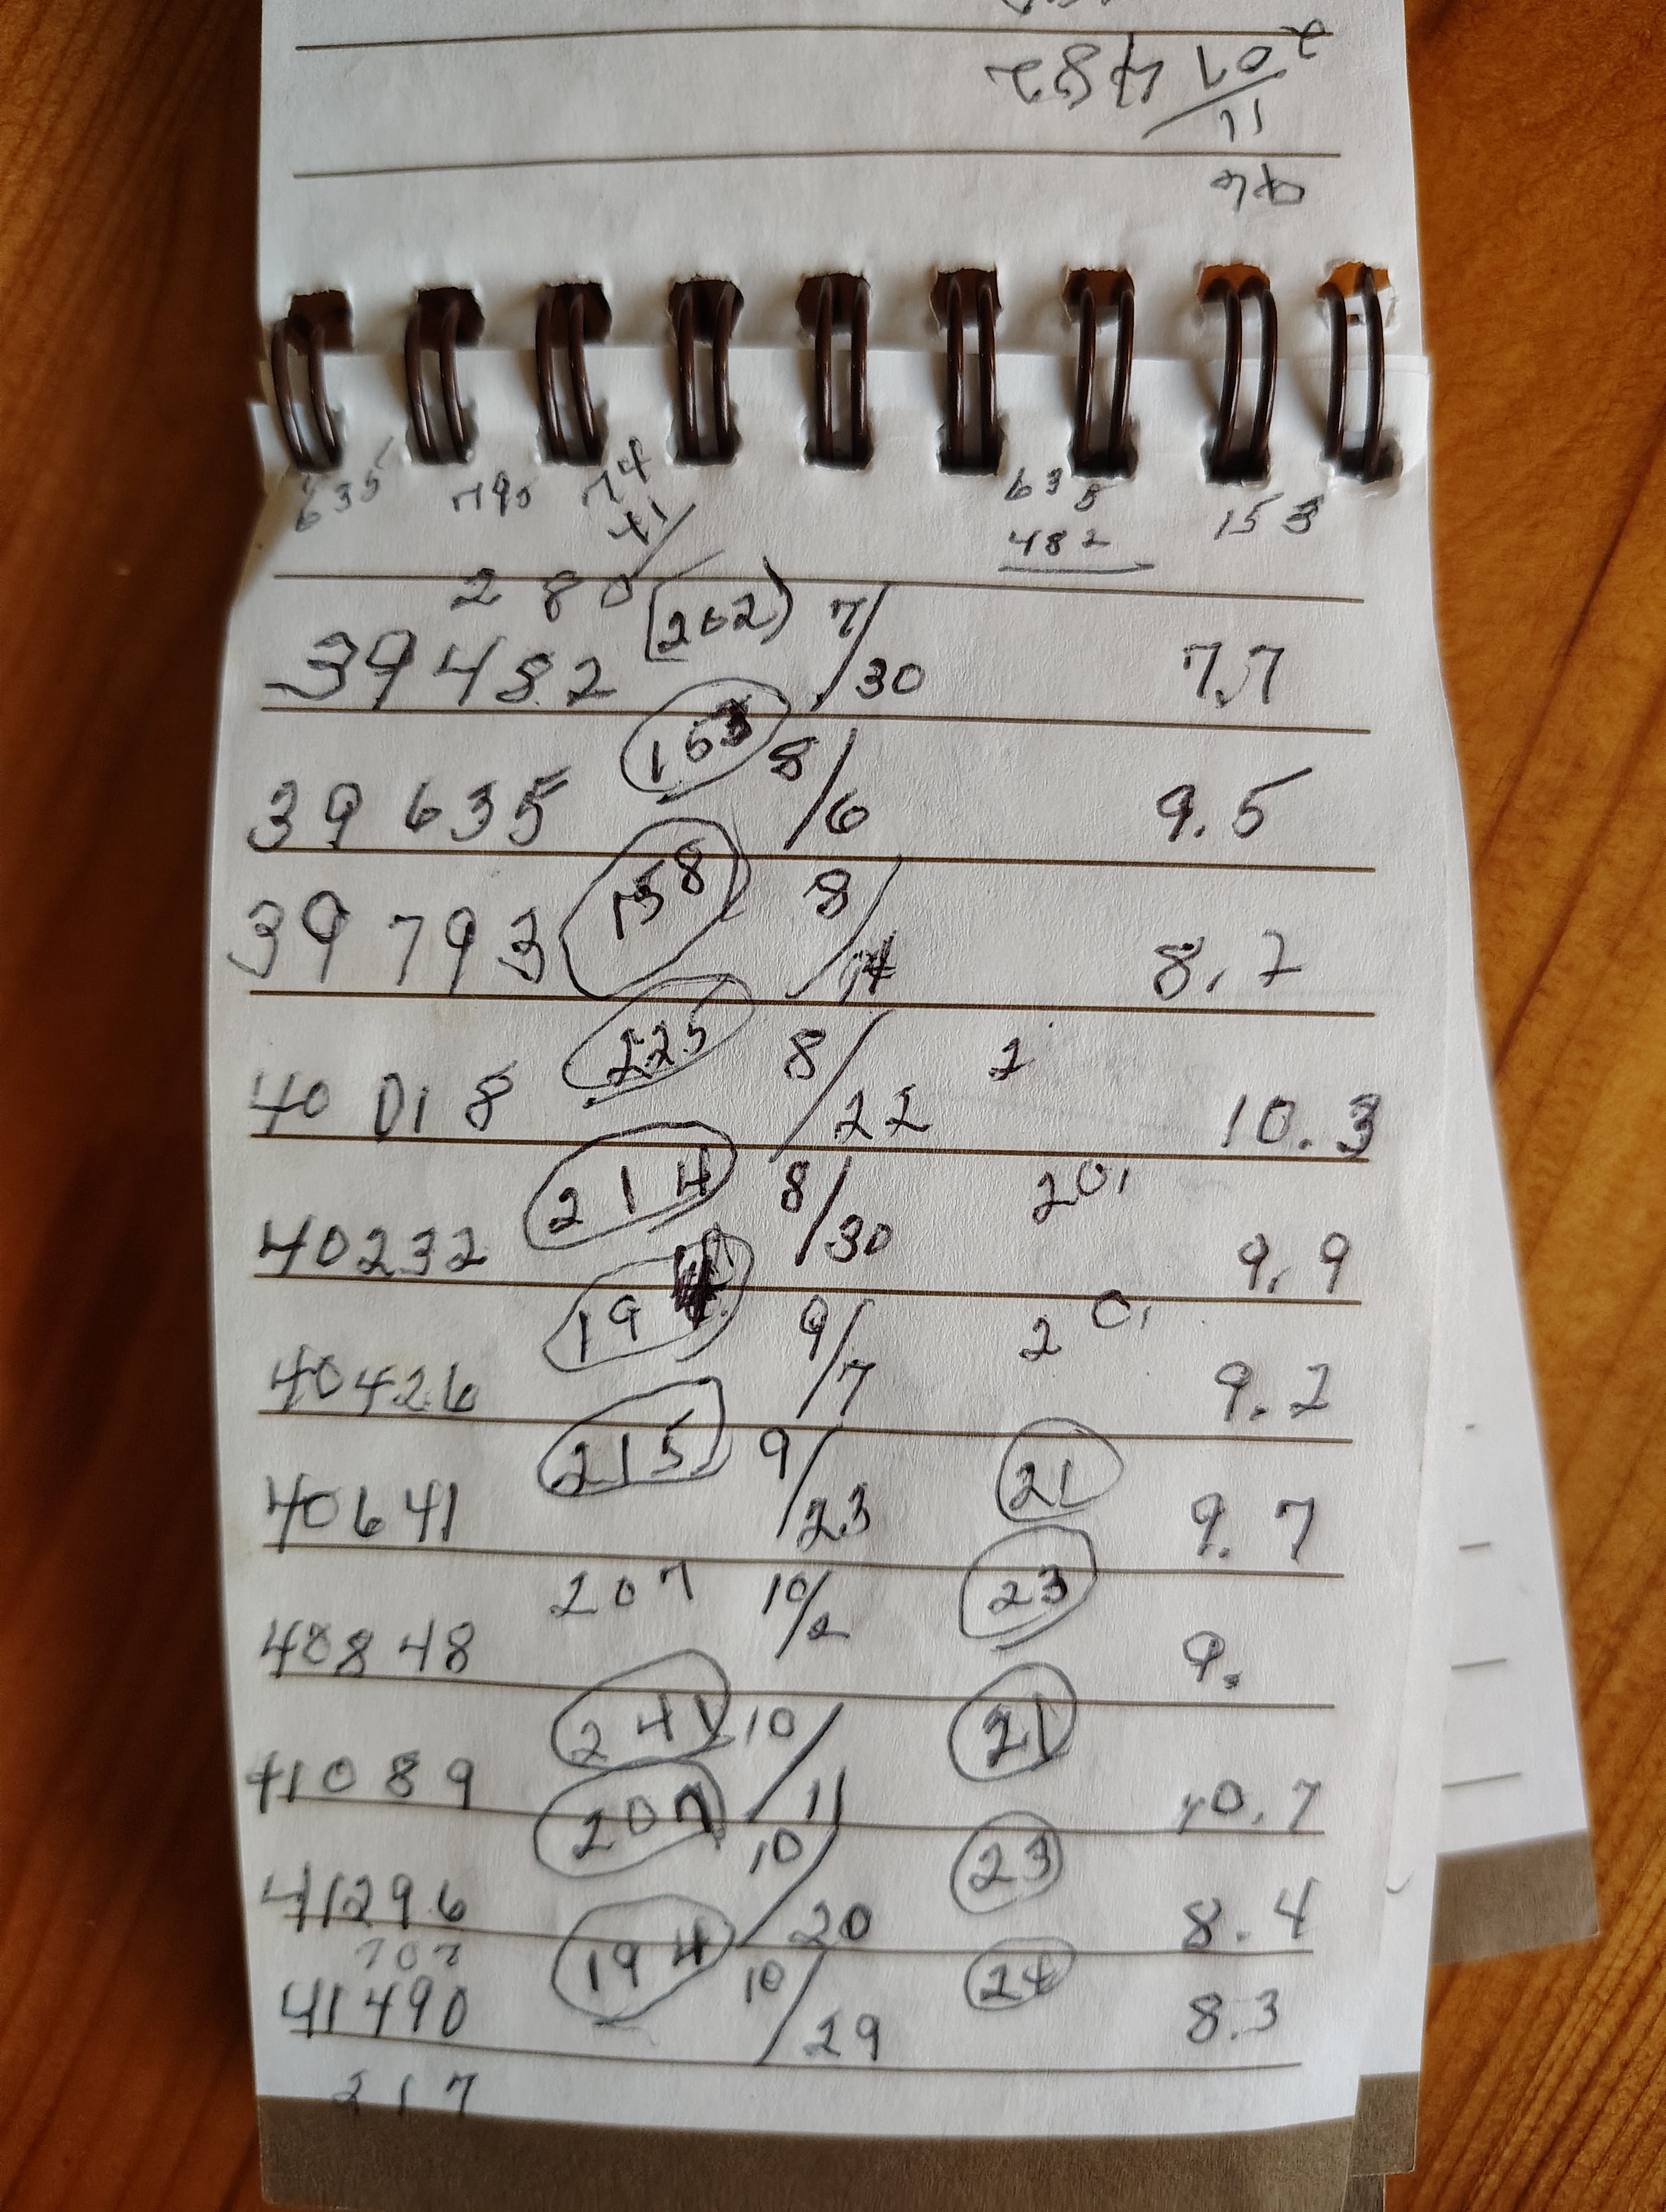 635 790 74 635 153
41/ 482
280
39482 (202) 7/30 7.7
39 635 163 8/6 9.5
39 793 158 8/14 8.2
40 018 225 8/22 2 10.3
40232 214 8/30 20, 9.9
40426 19 9/7 20, 9.2
40641 215 9/23 21 9.7
40848 207 10/2 23 9.
41089 241 10/11 21 10.7
41296 207 10/20 23 8.4
41490 194 10/29 24 8.3
217